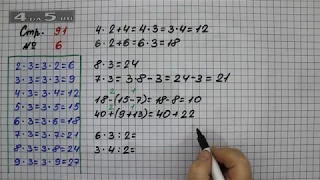 4 ДА 5 ПО
Стр. 91
№ 6
4·2+4=4·3=3·4=12
6·2+6=6·3=18
2·3=3·2=6
3·3=3·3=9
4·3=3·4=12
5·3=3·5=15
6·3=3·6=18
7·3=3·7=21
8·3=3·8=24
9·3=3·9=27
8·3=24
7·3=3·8-3=24-3=21
2 1
18-(15-7)=18-8=10
2 1
40+(9+13)=40+22
6·3:2=
3·4:2=